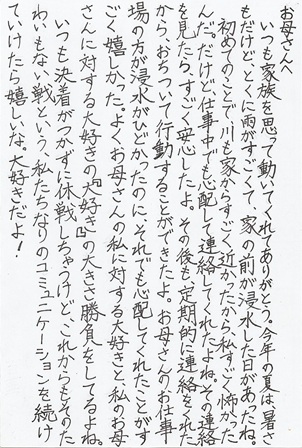 お母さんへ
いつも家族を思って動いてくれてありがとう。今年の夏は暑さ
もだけど、とくに雨がすごくて、家の前が浸水した日があったね。
初めてのことで、川も家からすごく近かったから、私すごく怖かった
んだ。だけど、仕事中でも心配して連絡してくれたよね。その連絡
を見たら、すごく安心したよ。その後も定期的に連絡をくれた
から、おちついて行動することができたよ。お母さんのお仕事
場の方が浸水がひどかったのに、それでも心配してくれたことがす
ごく嬉しかった。よくお母さんの私に対する大好きと、私のお母
さんに対する大好きの『大好き』の大きさ勝負をしてるよね。
いつも決着がつかずに休戦しちゃうけど、これからもそのた
わいもない戦という、私たちなりのコミュニケーションを続け
ていけたら嬉しいな。大好きだよ!